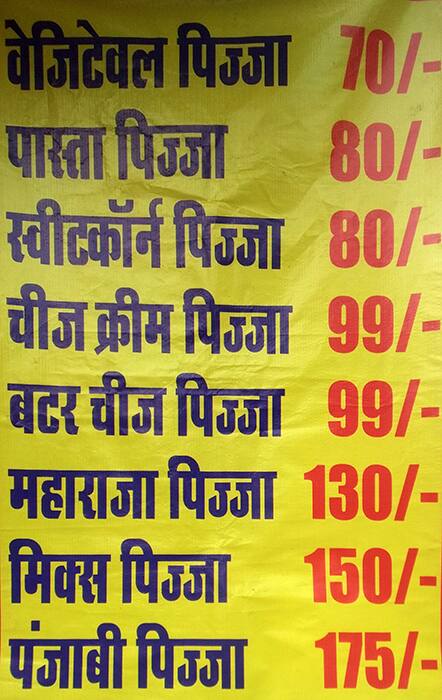 वेजिटेवल पिज्जा 70/-
पास्ता पिज्जा 80/-
स्वीटकॉर्न पिज्जा 80/-
चीज क्रीम पिज्जा 99/-
बटर चीज पिज्जा 99/-
महाराजा पिज्जा 130/-
मिक्स पिज्जा 150/-
पंजाबी पिज्जा 175/-